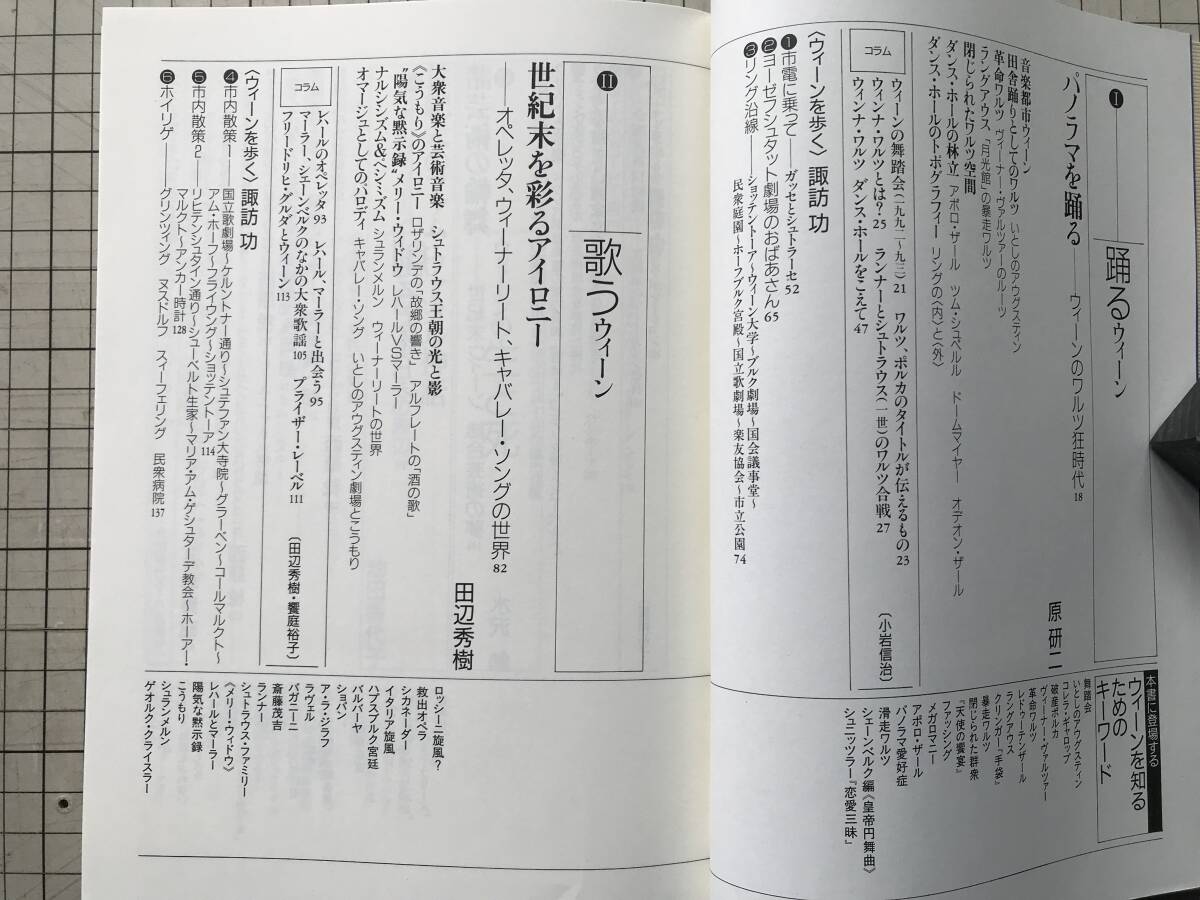 Ⅰ
踊るウィーン
パノラマを踊る——ウィーンのワルツ狂時代 18
原 研二
音楽都市ウィーン
田舎踊りとしてのワルツ いとしのアウグスティン
革命ワルツ ヴィーナー・ヴァルツァーのルーツ
ラングアウス、「月光館」の暴走ワルツ
閉じられたワルツ空間
ダンス・ホールの林立 アポロ・ザール ツム・シュペルル ドームマイヤー オデオン・ザール
ダンス・ホールのトポグラフィー リングの〈内〉と〈外〉
コラム
ウィーンの舞踏会(一九九二〜九三) 21 ワルツ、ポルカのタイトルが伝えるもの 23
ウィンナ・ワルツとは? 25 ランナーとシュトラウス(一世)のワルツ合戦 27
ウィンナ・ワルツ ダンス・ホールをこえて 47
(小岩信治)
〈ウィーンを歩く〉 諏訪 功
❶市電に乗って——ガッセとシュトラーセ 52
❷ヨーゼフシュタット劇場のおばあさん 65
❸リング沿線——ショッテントーア〜ウィーン大学〜ブルク劇場〜国会議事堂〜
民衆庭園〜ホーフブルク宮殿〜国立歌劇場〜楽友協会〜市立公園 74
本書に登場する
ウィーンを知る
ための
キーワード
舞踏会
いとしのアウグスティン
コレラ・ギャロップ
破産ポルカ
ヴィーナー・ヴァルツァー
革命ワルツ
レドゥーテンザール
ラングアウス
クリンガー「手袋」
暴走ワルツ
閉じられた群衆
『天使の饗宴』
ファッシング
メガロマニー
アポロ・ザール
パノラマ愛好症
滑走ワルツ
シェーンベルク編《皇帝円舞曲》
シュニッツラー『恋愛三昧』
Ⅱ
歌うウィーン
世紀末を彩るアイロニー
——オペレッタ、ウィーナーリート、キャバレー・ソングの世界 82
田辺秀樹
大衆音楽と芸術音楽 シュトラウス王朝の光と影
《こうもり》のアイロニー ロザリンデの「故郷の響き」 アルフレートの「酒の歌」
“陽気な黙示録”メリー・ウィドウ レハールVSマーラー
ナルシシズム&ペシミズム シュランメルン ウィーナーリートの世界
オマージュとしてのパロディ キャバレー・ソング いとしのアウグスティン劇場とこうもり
コラム
レハールのオペレッタ 93 レハール、マーラーと出会う 95
マーラー、シェーンベルクのなかの大衆歌謡 105 プライザー・レーベル 111
フリードリヒ・グルダとウィーン 113
(田辺秀樹・饗庭裕子)
〈ウィーンを歩く〉 諏訪 功
❹市内散策1——国立歌劇場〜ケルントナー通り〜シュテファン大寺院〜グラーベン〜コールマルクト〜
アム・ホーフ〜フライウング〜ショッテントーア 114
❺市内散策2——リヒテンシュタイン通り〜シューベルト生家〜マリア・アム・ゲシュターデ教会〜ホーアー・
マルクト〜アンカー時計 128
❻ホイリゲ——グリンツィング ヌスドルフ スィーフェリング 民衆病院 137
ロッシーニ旋風?
救出オペラ
シカネーダー
イタリア旋風
ハプスブルク宮廷
バルバーヤ
ショパン
ア・ラ・ジラフ
ラヴェル
パガニーニ
斎藤茂吉
ランナー
シュトラウス・ファミリー
《メリー・ウィドウ》
レハールとマーラー
陽気な黙示録
こうもり
シュランメルン
ゲオルク・クライスラー